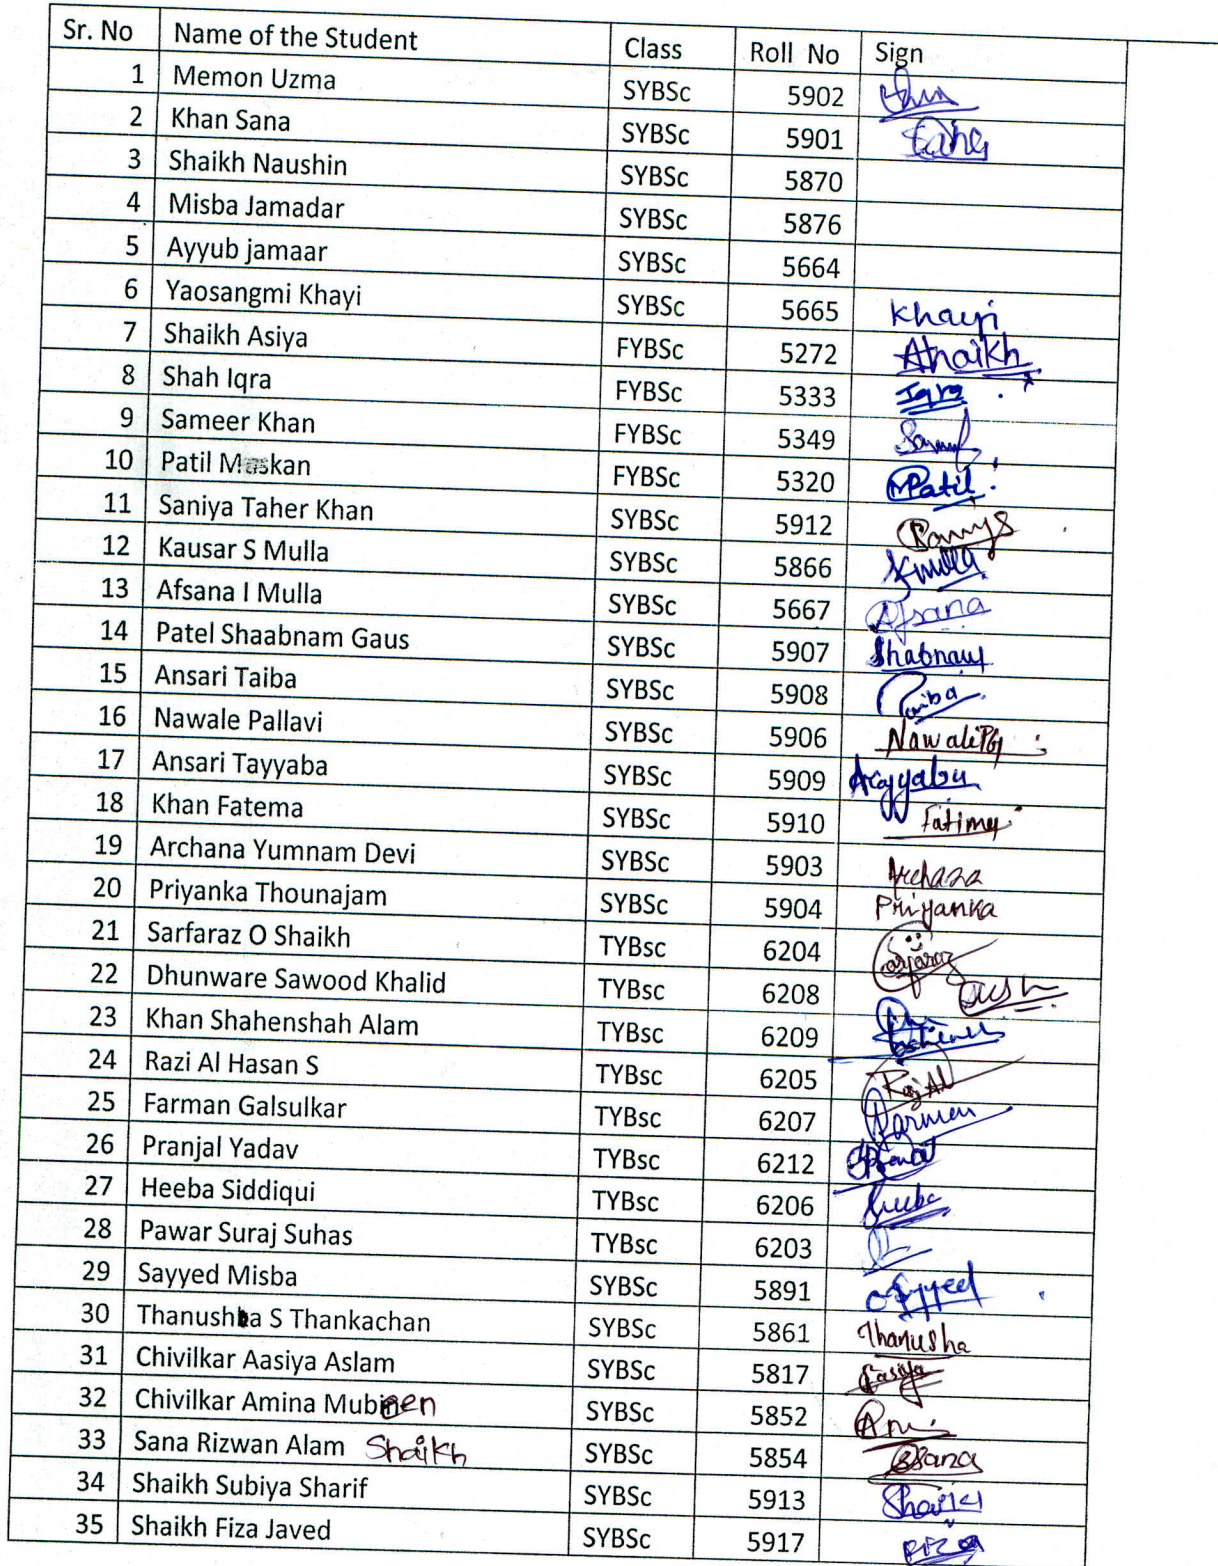 Sr. No Name of the Student Class Roll No Sign
1 Memon Uzma SYBSc 5902
2 Khan Sana SYBSc 5901
3 Shaikh Naushin SYBSc 5870
4 Misba Jamadar SYBSc 5876
5 Ayyub jamaar SYBSc 5664
6 Yaosangmi Khayi SYBSc 5665 Khayi
7 Shaikh Asiya FYBSc 5272 Ahaikh
8 Shah Iqra FYBSc 5333 Iqra
9 Sameer Khan FYBSc 5349
10 Patil Maskan FYBSc 5320 MPatil
11 Saniya Taher Khan SYBSc 5912
12 Kausar S Mulla SYBSc 5866
13 Afsana I Mulla SYBSc 5667 Afsana
14 Patel Shaabnam Gaus SYBSc 5907 Shabnam
15 Ansari Taiba SYBSc 5908 Taiba
16 Nawale Pallavi SYBSc 5906
17 Ansari Tayyaba SYBSc 5909
18 Khan Fatema SYBSc 5910 Fatima
19 Archana Yumnam Devi SYBSc 5903 Archana
20 Priyanka Thounajam SYBSc 5904 Priyanka
21 Sarfaraz O Shaikh TYBsc 6204 Sarfaraz
22 Dhunware Sawood Khalid TYBsc 6208
23 Khan Shahenshah Alam TYBsc 6209
24 Razi Al Hasan S TYBsc 6205
25 Farman Galsulkar TYBsc 6207 Farman
26 Pranjal Yadav TYBsc 6212
27 Heeba Siddiqui TYBsc 6206 Heeba
28 Pawar Suraj Suhas TYBsc 6203
29 Sayyed Misba SYBSc 5891
30 Thanushba S Thankachan SYBSc 5861 Thanusha
31 Chivilkar Aasiya Aslam SYBSc 5817 Aasiya
32 Chivilkar Amina Mubeen SYBSc 5852
33 Sana Rizwan Alam Shaikh SYBSc 5854 Sana
34 Shaikh Subiya Sharif SYBSc 5913 Shaikh
35 Shaikh Fiza Javed SYBSc 5917 Fiza